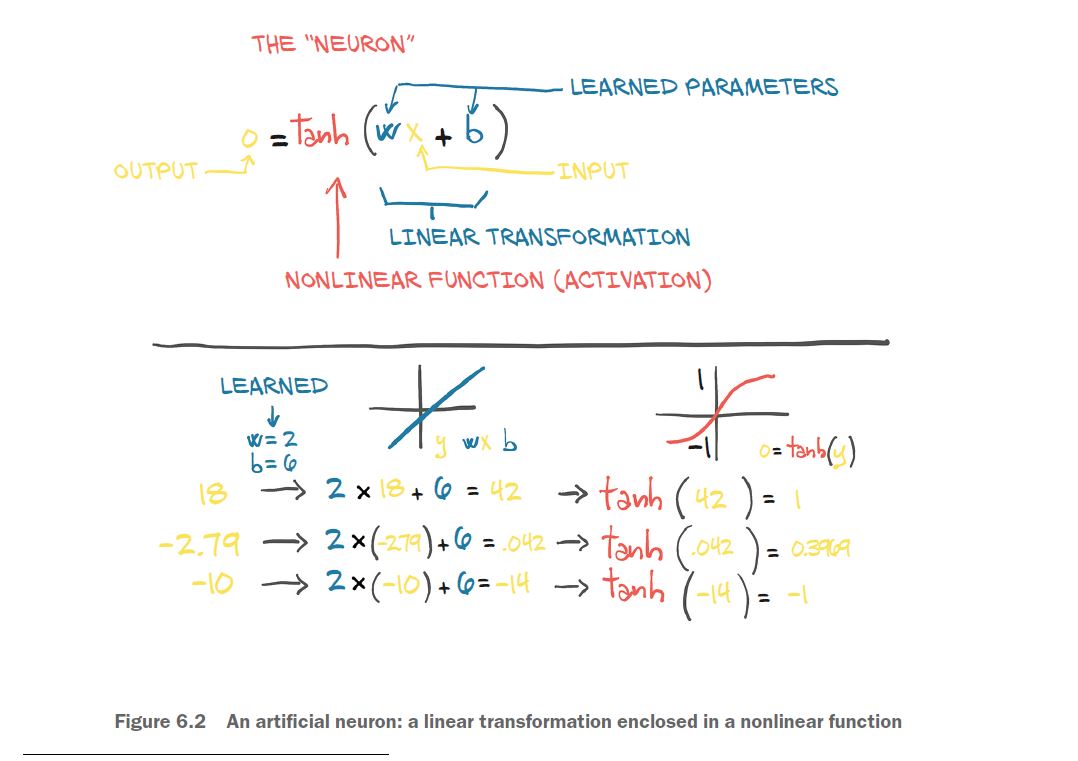 THE "NEURON"
LEARNED PARAMETERS
o = tanh (wx + b)
OUTPUT
INPUT
LINEAR TRANSFORMATION
NONLINEAR FUNCTION (ACTIVATION)
LEARNED
w=2
b=6
y wx b
1
-1
o=tanh(y)
18 → 2 × 18 + 6 = 42 → tanh (42) = 1
-2.79 → 2 × (-2.79) + 6 = .042 → tanh (.042) = 0.3969
-10 → 2 × (-10) + 6 = -14 → tanh (-14) = -1
Figure 6.2 An artificial neuron: a linear transformation enclosed in a nonlinear function